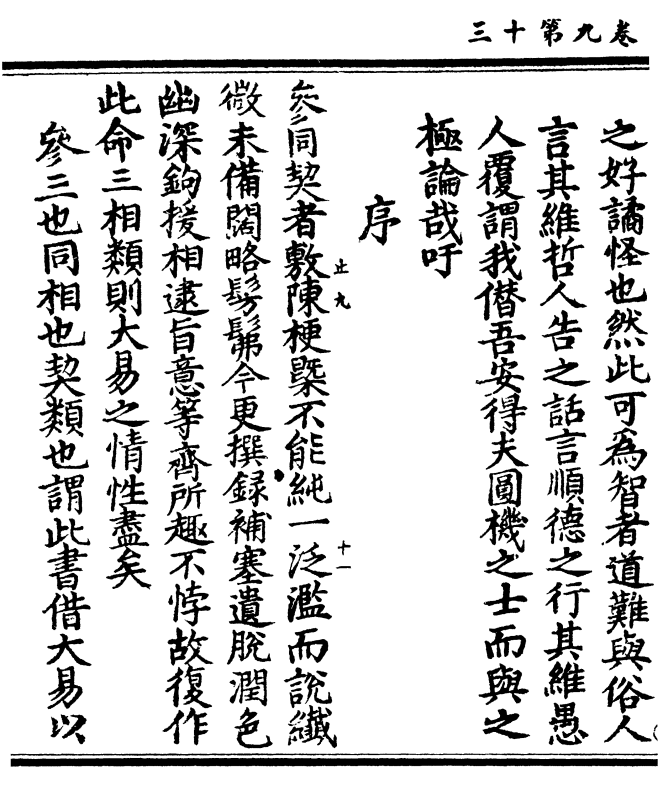 卷九第十三
之好譎怪也然此可為智者道難與俗人
言其維哲人告之話言順德之行其維愚
人覆謂我僭吾安得夫圓機之士而與之
極論哉吁
序
參同契者敷陳梗槩不能純一泛濫而說纖
微未備闊略髣髴今更撰録補塞遺脫潤色
幽深鉤援相逮旨意等齊所趣不悖故復作
此命三相類則大易之情性盡矣
參三也同相也契類也謂此書借大易以
止九
十一